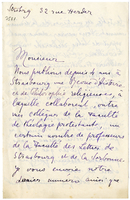 Strasbg 32 rue Herder
Monsieur
Nous publions depuis 4 ans à
Strasbourg une Revue d'Histoire
et de Philosophie religieuses, à
laquelle collaborent, outre
mes collègues de la Faculté
de Théologie protestante, un
certain nombre de professeurs
de la Faculté des Lettres de
Strasbourg et de la Sorbonne.
Je vous envoie notre
dernier numéro ainsi que